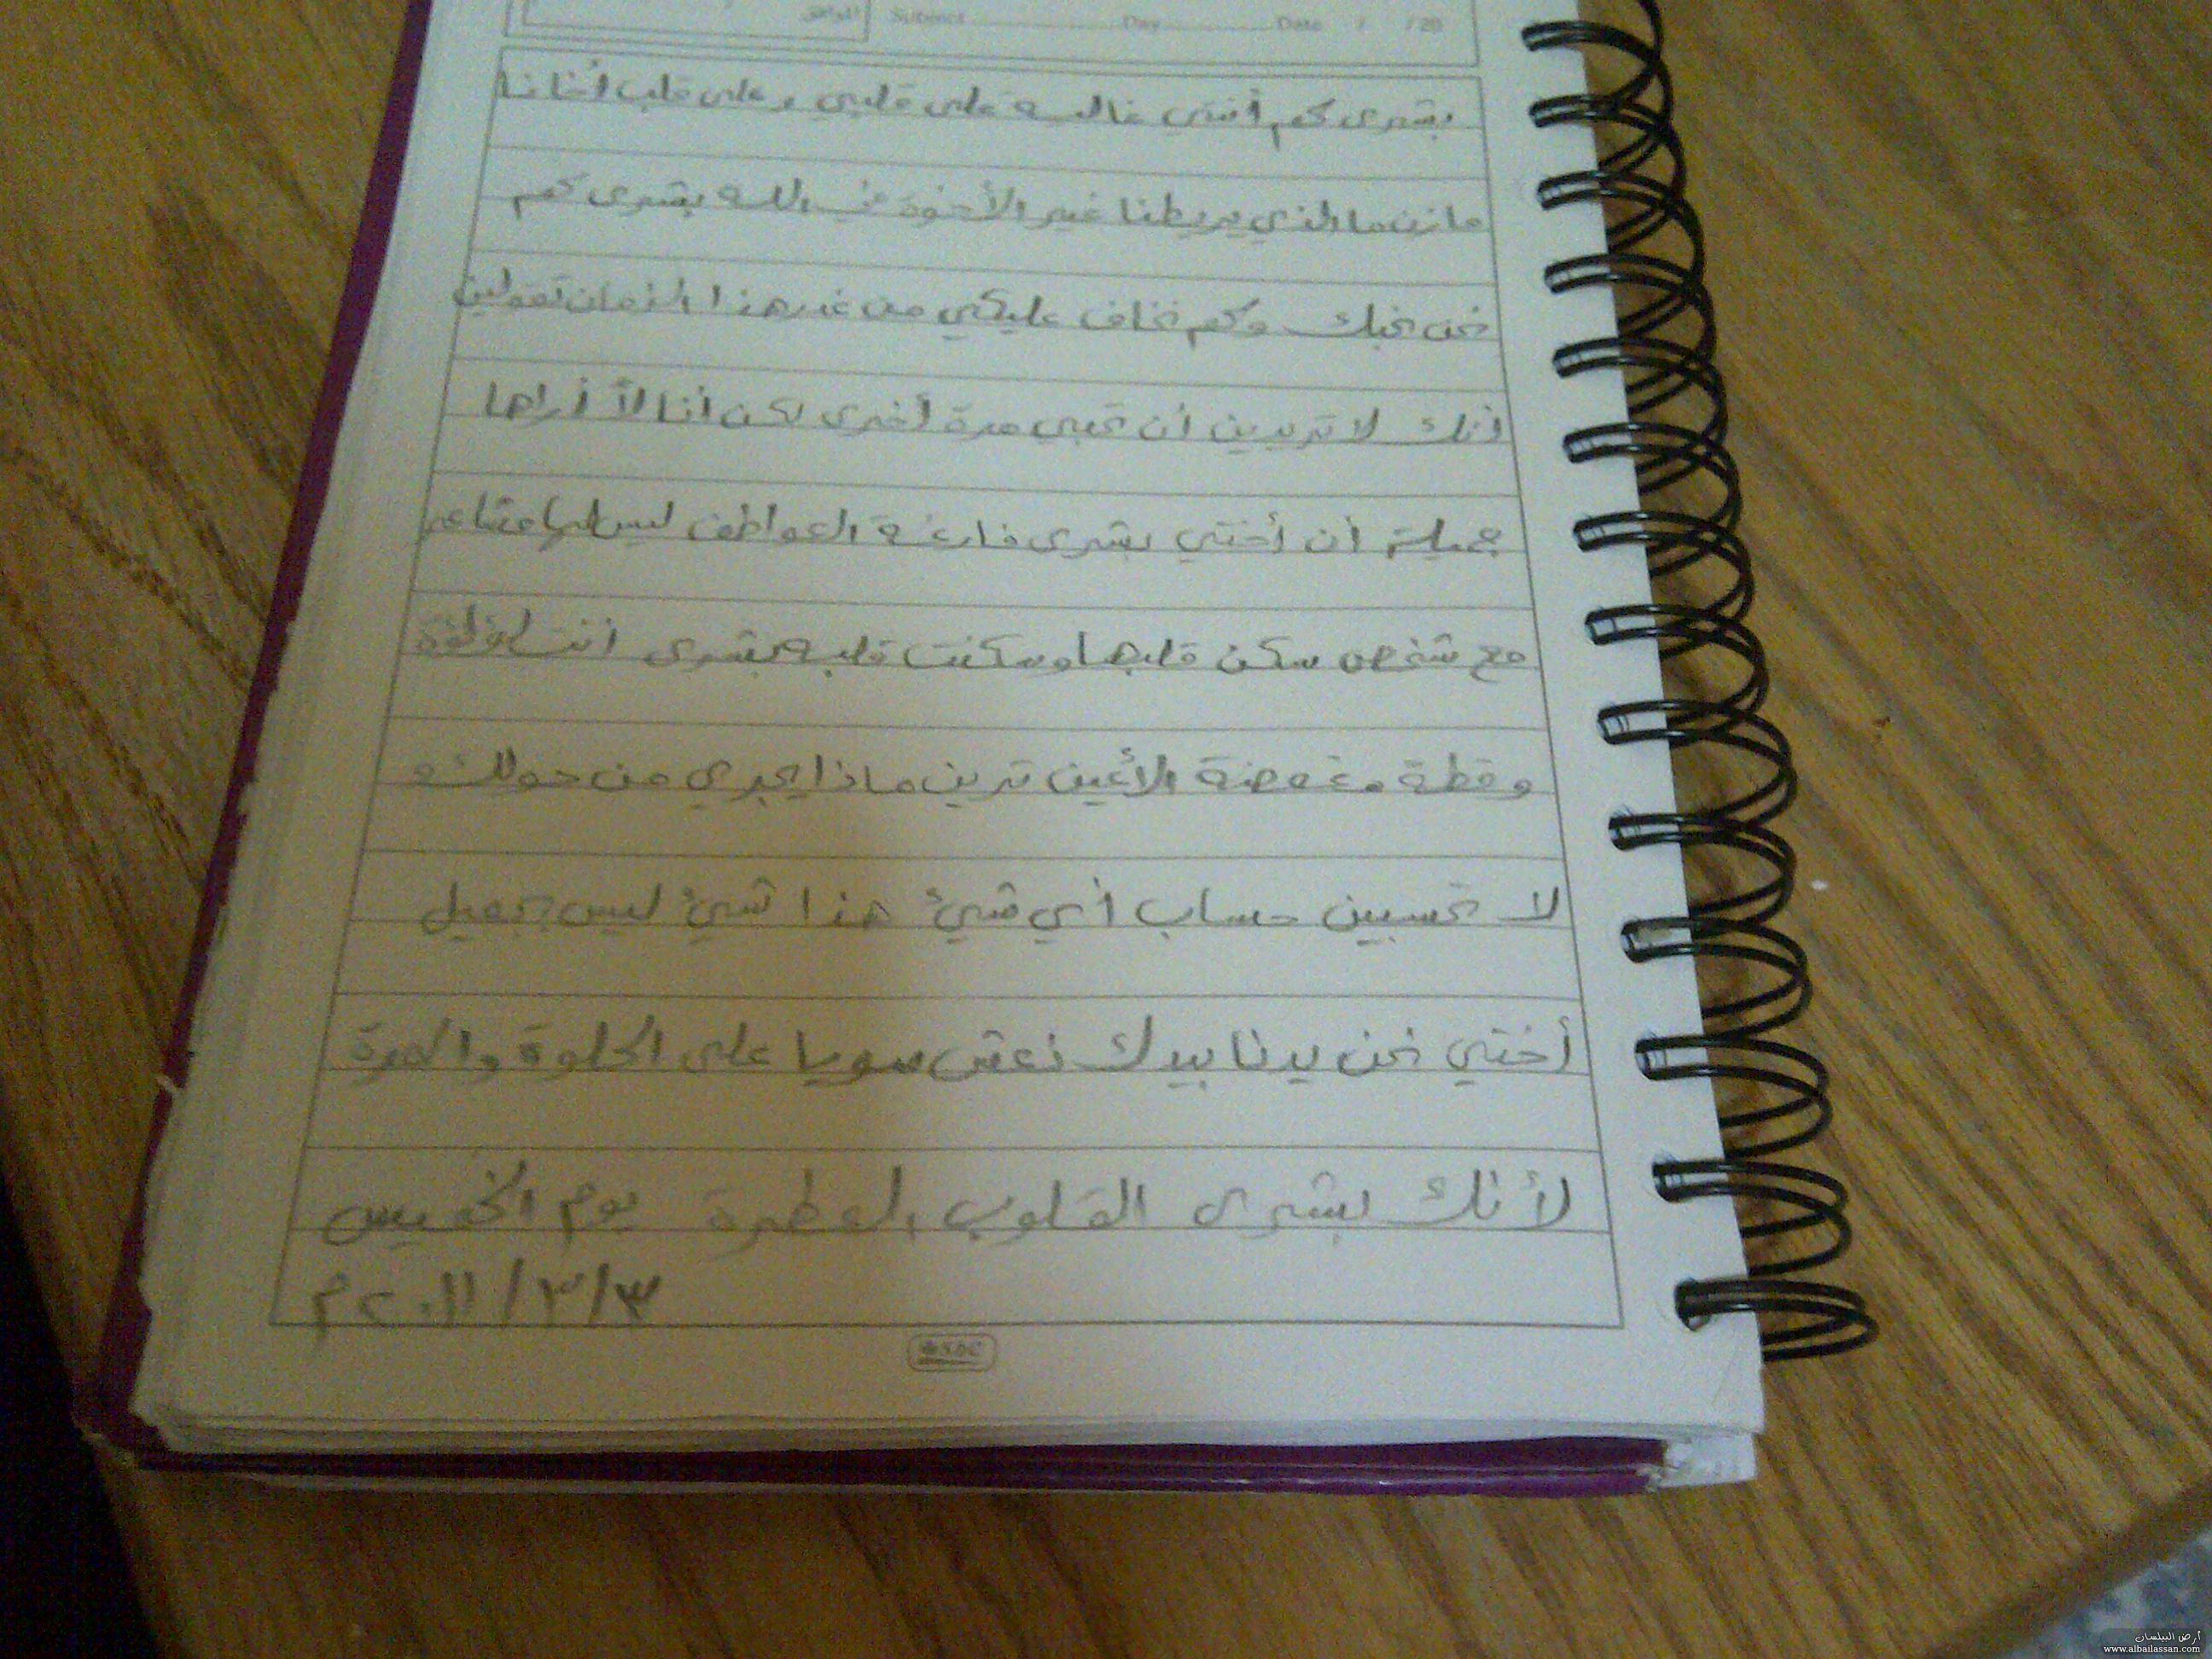 Subject ........ Day ........ Date / / 20
بشرى كم أنتي غالية على قلبي وعلى قلب أخانا
مازن ما الذي يربطنا غير الأخوة في الله بشرى كم
نحن نحبك وكم نخاف عليكي من غدر هذا الزمان تقولين
أنك لا تريدين أن تحبي مرة أخرى لكن أنا لا أراها
جميلة أن أختي بشرى فارغة العواطف ليس لها مشاعر
مع شخص سكن قلبها وسكنت قلبه بشرى أنت لؤلؤة
وقطة مغمضة الأعين ترين ماذا يجري من حولك و
لا تحسبين حساب أي شيئ هذا شيئ ليس جميل
أختي نحن يدنا بيدك نعش سويا على الحلوة والمرة
لأنك بشرى القلوب العطرة يوم الخميس
٣/٣/٢٠١١م
أرض البيلسان
www.albailassan.com